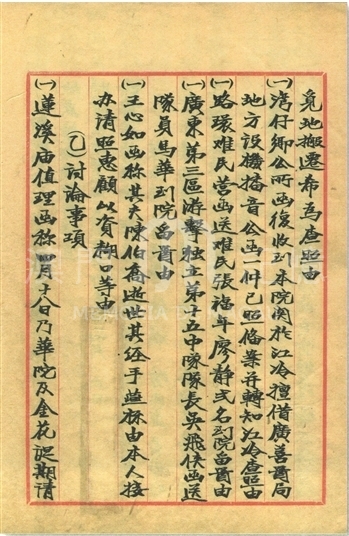 覓地搬遷布為查照由
(一)湾仔鄉公所函復收到本院關於江冷擅借廣善醫局
地方設機播音公函一件已照偹案并轉知江冷查照由
(一)路環难民营函送难民張福年廖静弍名到院留醫由
(一)廣東第三區游擊独立第十五中隊隊長吳飛俠函送
隊員馬華到院留醫由
(一)王心如函称其夫陳伯喬逝世其经手燕梳由本人接
办请照惠顧以資糊口等由
(乙)讨論事項
(一)蓮溪庙值理函称四月十八日乃華院及金花誕期请
MEMÓRIA